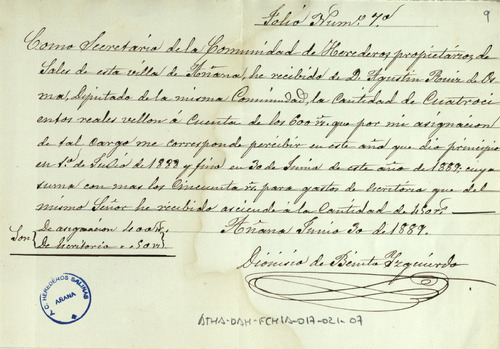 Folio Num.º 7.º
9
Como Secretario de la Comunidad de Herederos propietarios de
Sales de esta villa de Añana, he recibido de D. Agustin Ruiz de Os-
ma, Diputado de la misma Comunidad, la Cantidad de Cuatroci-
entos reales vellon á Cuenta de los 600 rs. que por mi asignacion
de tal cargo me corresponde percibir en este año que dió principio
en 1.º de Julio de 1888 y fina en 30 de Junio de este año de 1889: cuya
suma con mas los Cincuenta rs. para gastos de escritorio que del
mismo Señor he recibido asciende á la Cantidad de 450 rs.
Son { De asignacion 400 rs. Añana Junio 30 de 1889.
De escritorio 50 rs.
Dionisio de Benito Yzquierdo
A.C. HEREDEROS SALINAS
AÑANA
ATHA-DAH-FCHIA-017-021-07